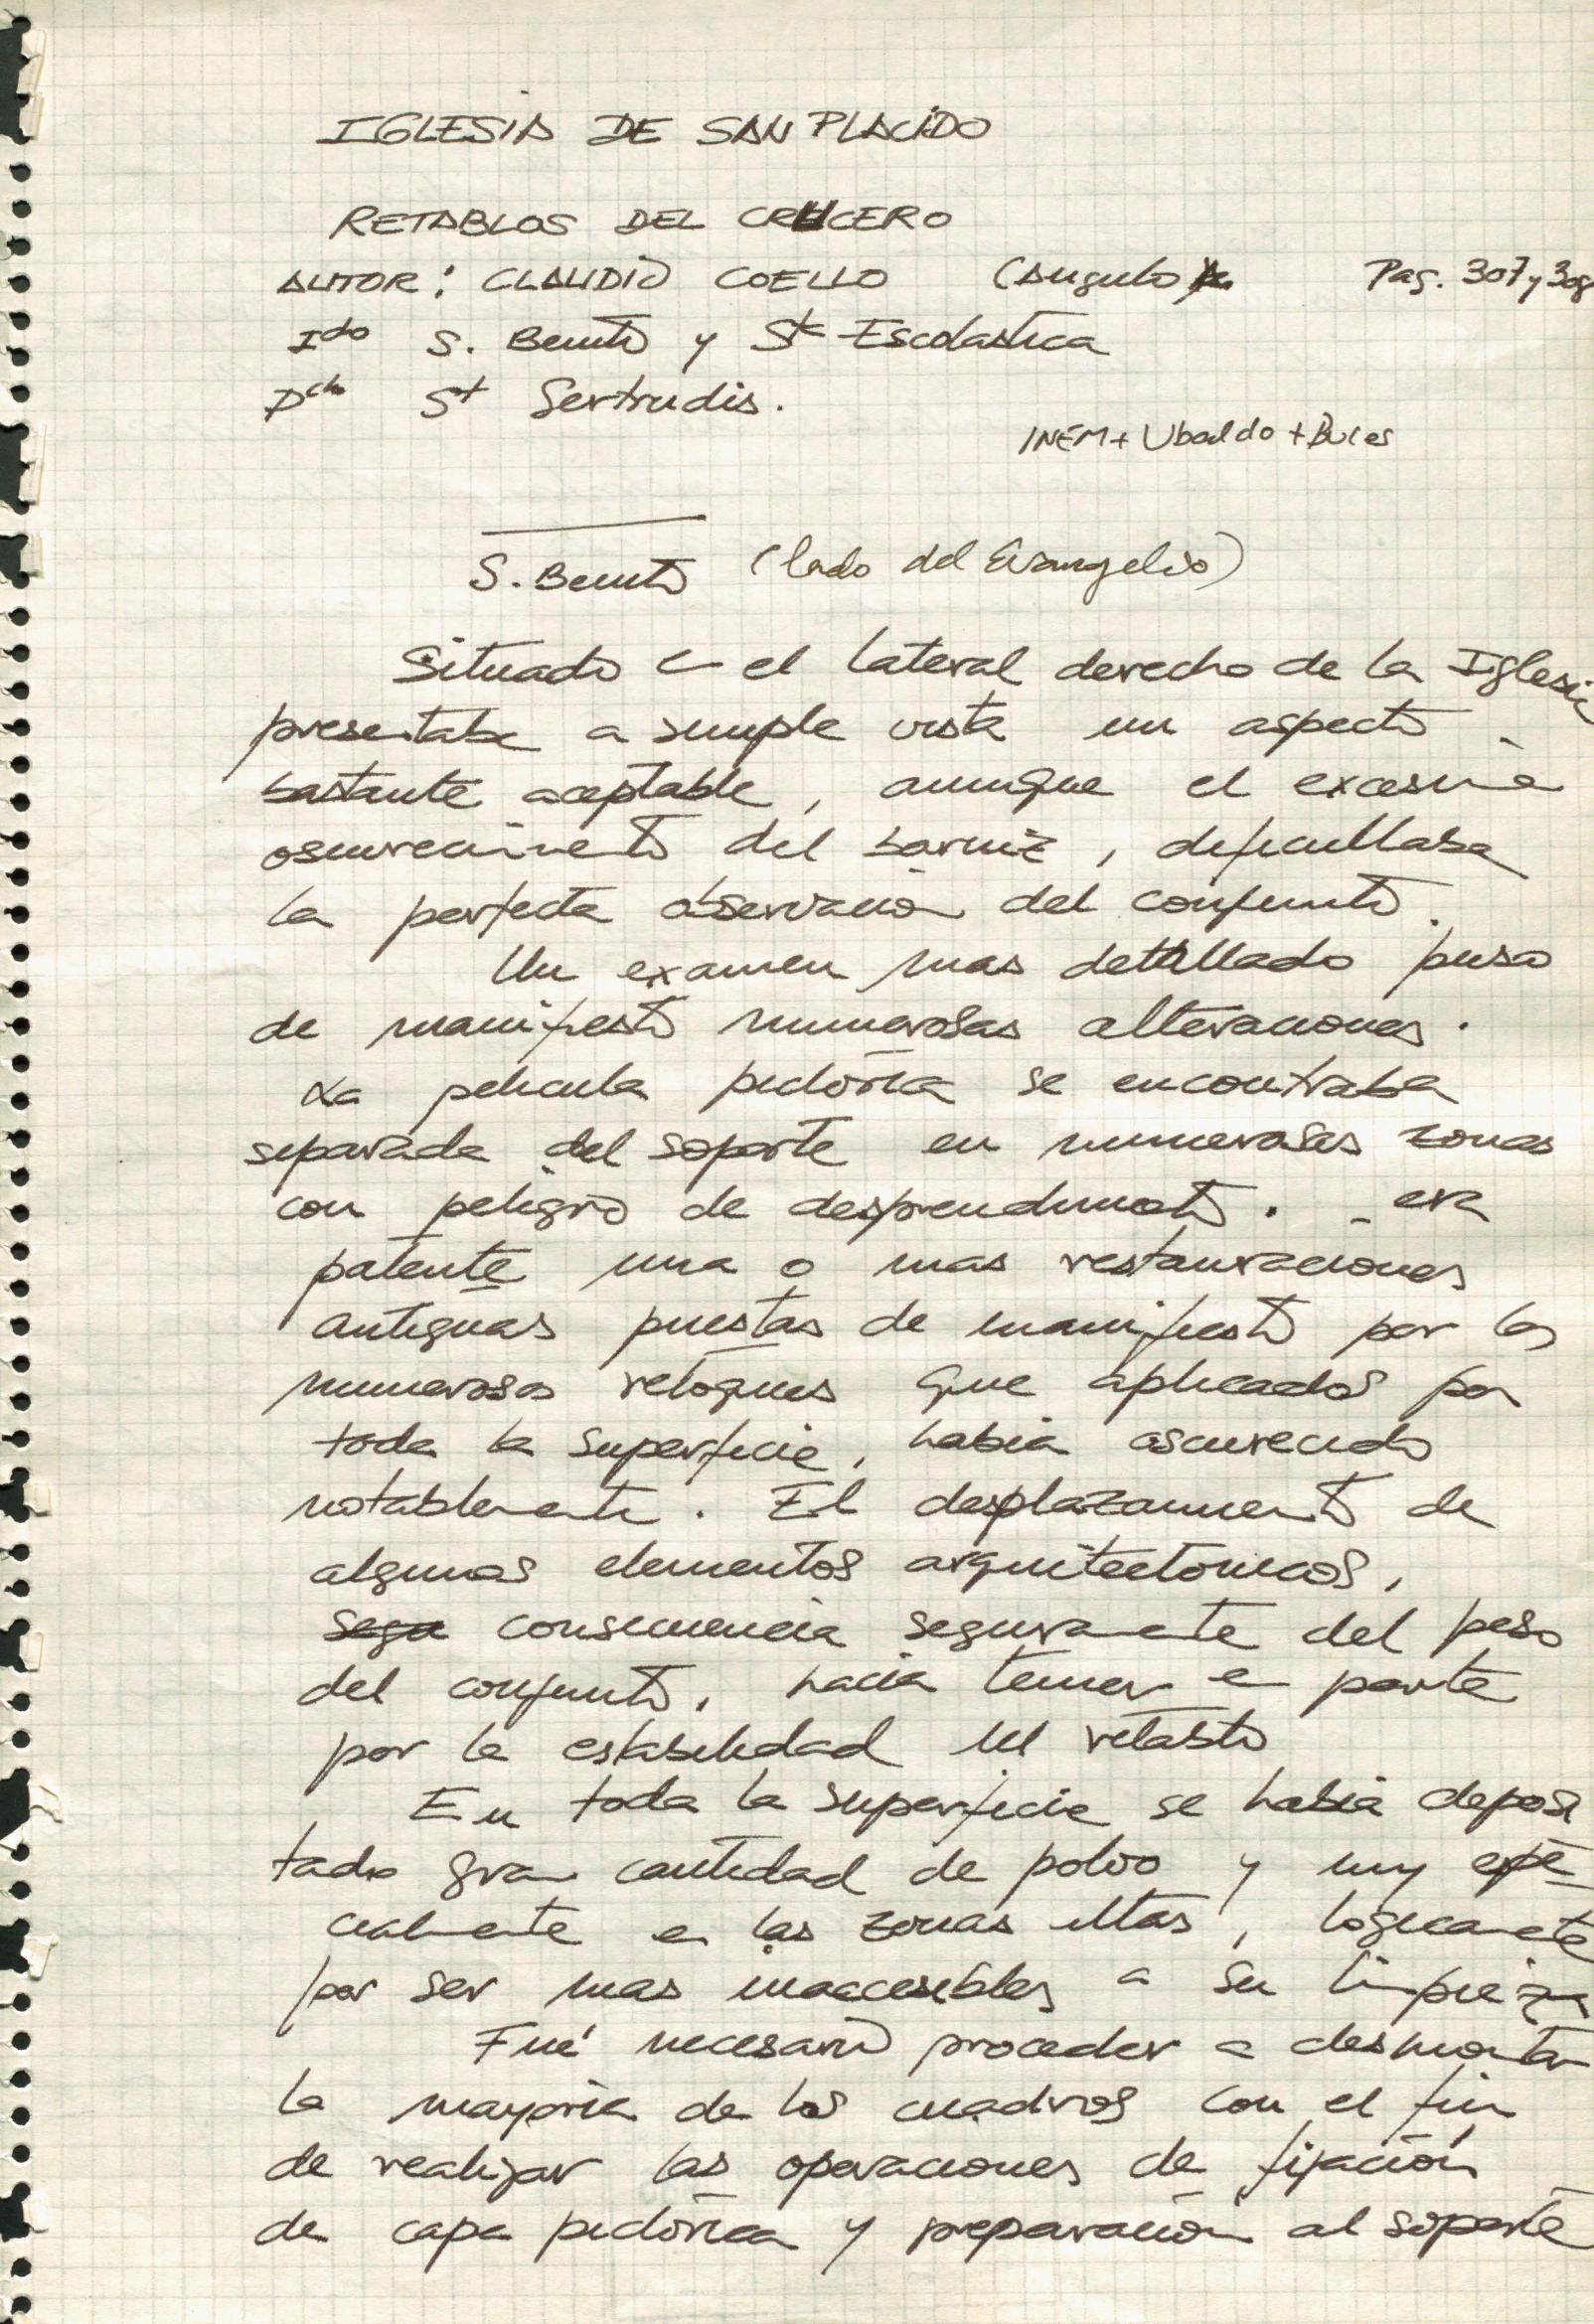 IGLESIA DE SAN PLACIDO
RETABLOS DEL CRUCERO
AUTOR: CLAUDIO COELLO (Angulo Pag. 307 y 308
Ido S. Benito y Sta Escolastica
Dcho St Gertrudis.
INEM + Ubaldo + Bures
S. Benito (lado del Evangelio)
Situado en el lateral derecho de la Iglesia
presentaba a simple vista un aspecto
bastante aceptable, aunque el excesivo
oscurecimiento del barniz, dificultaba
la perfecta observación del conjunto.
Un examen mas detallado puso
de manifiesto numerosas alteraciones.
La pelicula pictórica se encontraba
separada del soporte en numerosas zonas
con peligro de desprendimiento. era
patente una o mas restauraciones
antiguas puestas de manifiesto por los
numerosos retoques que aplicados por
toda la superficie, habia oscurecido
notablemente. El desplazamiento de
algunos elementos arquitectonicos,
sega consecuencia seguramente del peso
del conjunto, hacia temer en parte
por la estabilidad del retablo
En toda la superficie se habia deposi
tado gran cantidad de polvo y muy espe-
cialmente en las zonas altas, logicamente
por ser mas inaccesibles a su limpieza
Fué necesario proceder a desmontar
la mayoria de los cuadros con el fin
de realizar las operaciones de fijación
de capa pictórica y preparación al soporte